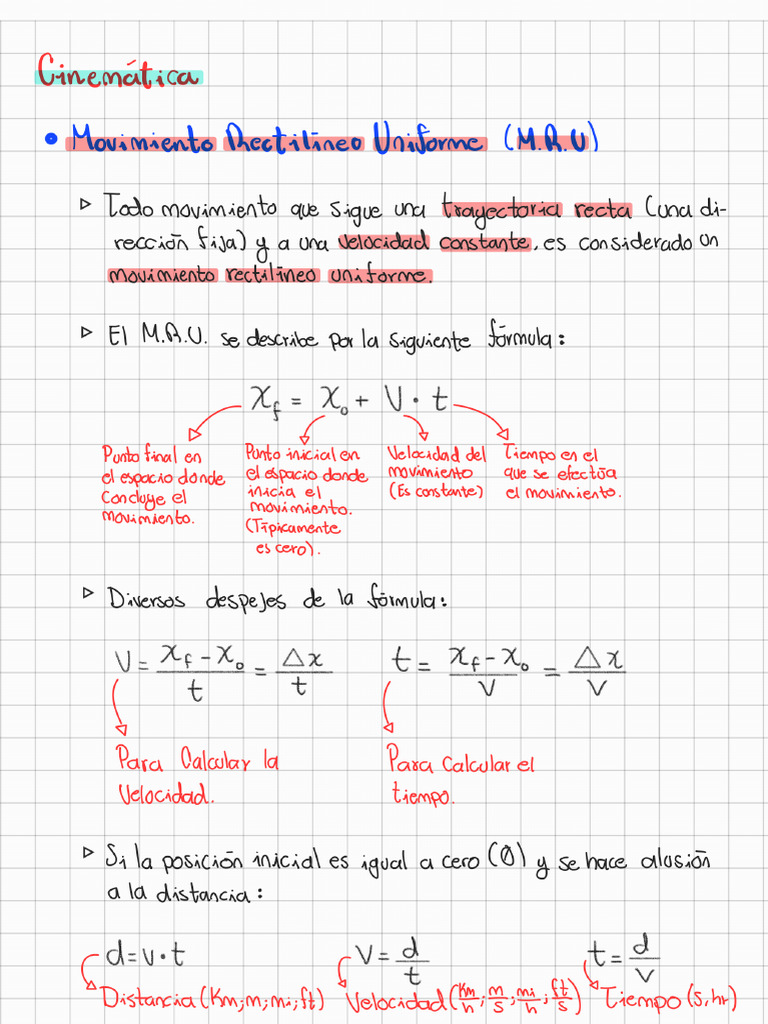 Cinemática
• Movimiento Rectilíneo Uniforme (M.R.U)
▷ Todo movimiento que sigue una trayectoria recta (una di-
rección fija) y a una velocidad constante, es considerado un
movimiento rectilíneo uniforme.
▷ El M.R.U. se describe por la siguiente fórmula:
x_f = x_0 + V · t
Punto final en
el espacio donde
concluye el
movimiento.
Punto inicial en
el espacio donde
inicia el
movimiento.
(Típicamente
es cero).
Velocidad del
movimiento
(Es constante)
Tiempo en el
que se efectúa
el movimiento.
▷ Diversos despejes de la fórmula:
V = (x_f - x_0)/t = Δx/t
t = (x_f - x_0)/V = Δx/V
Para Calcular la
Velocidad.
Para calcular el
tiempo.
▷ Si la posición inicial es igual a cero (0) y se hace alusión
a la distancia:
d = v · t
V = d/t
t = d/v
Distancia (Km; m; mi; ft)
Velocidad (Km/h; m/s; mi/h; ft/s)
Tiempo (s, hr)